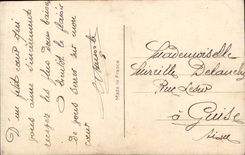 D'un petit cœur qui
vous aime sincèrement
recevez les plus doux baisers
le plaisir
de vous
sur mon
cœur
Made in France
Mademoiselle
Mireille Delanchy
Rue Lesur
à Guise
Aisne